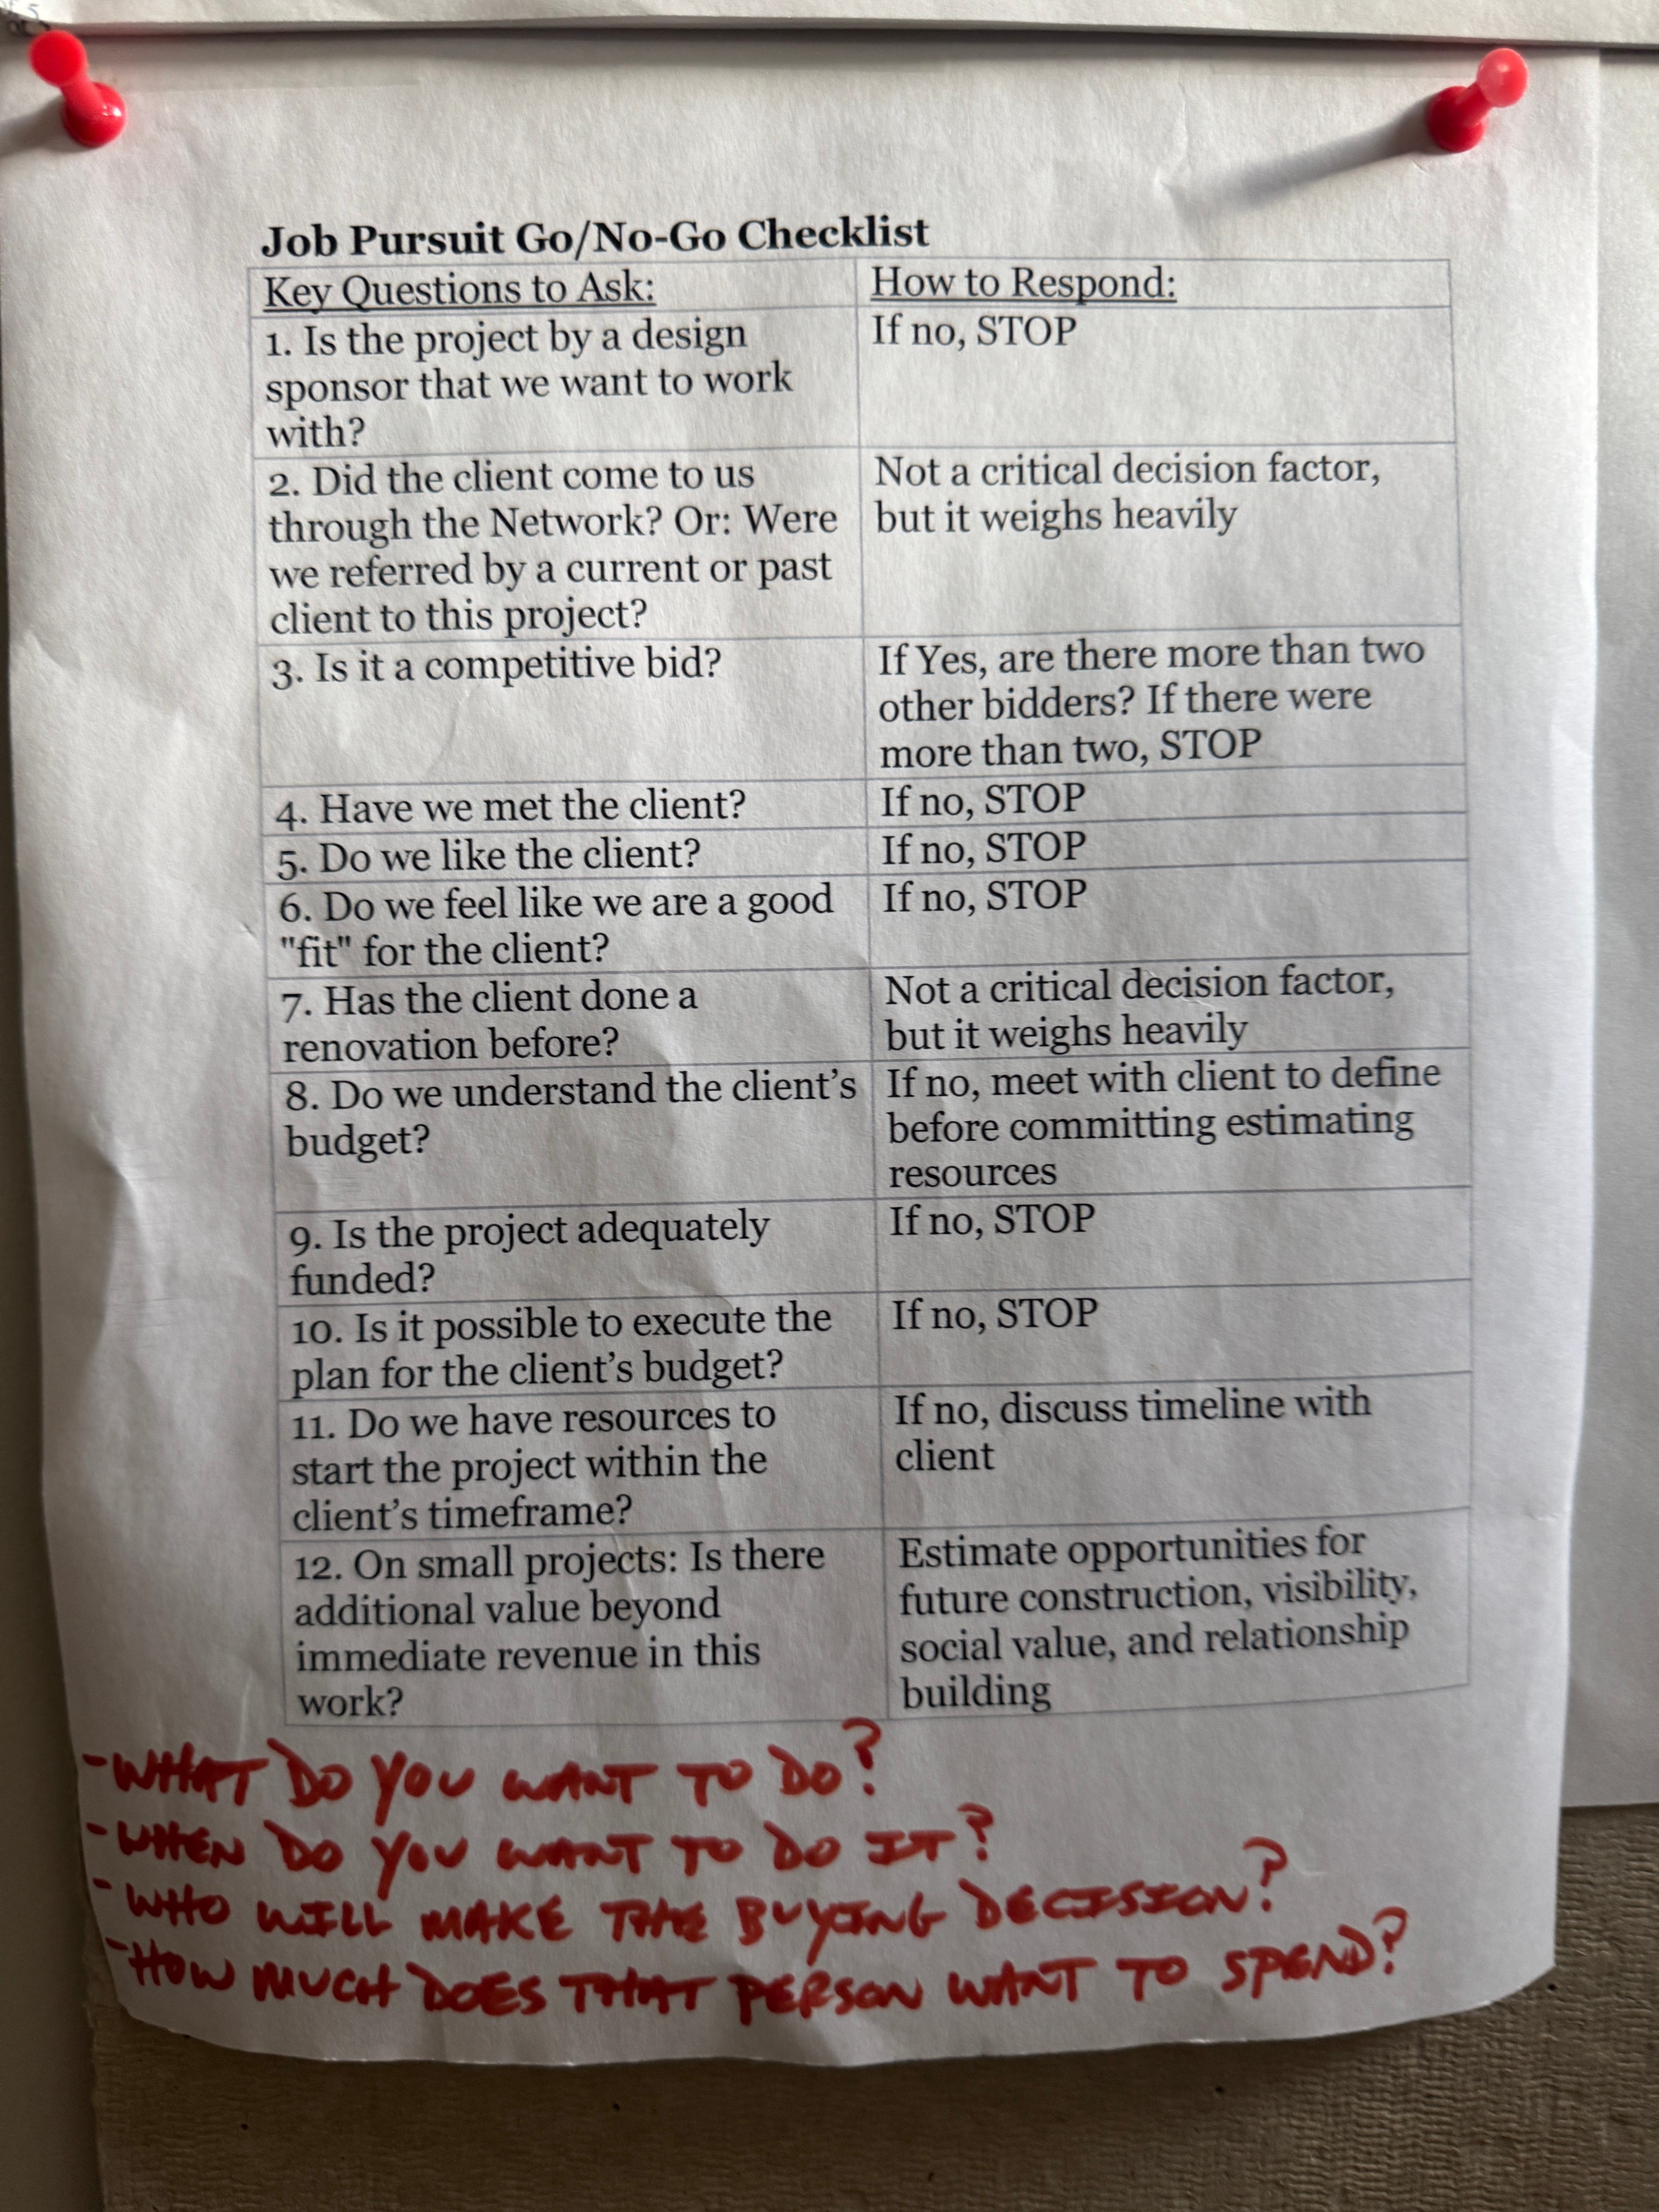 Job Pursuit Go/No-Go Checklist
Key Questions to Ask:
How to Respond:
1. Is the project by a design
sponsor that we want to work
with?
If no, STOP
2. Did the client come to us
through the Network? Or: Were
we referred by a current or past
client to this project?
Not a critical decision factor,
but it weighs heavily
3. Is it a competitive bid?
If Yes, are there more than two
other bidders? If there were
more than two, STOP
4. Have we met the client?
If no, STOP
5. Do we like the client?
If no, STOP
6. Do we feel like we are a good
"fit" for the client?
If no, STOP
7. Has the client done a
renovation before?
Not a critical decision factor,
but it weighs heavily
8. Do we understand the client’s
budget?
If no, meet with client to define
before committing estimating
resources
9. Is the project adequately
funded?
If no, STOP
10. Is it possible to execute the
plan for the client’s budget?
If no, STOP
11. Do we have resources to
start the project within the
client’s timeframe?
If no, discuss timeline with
client
12. On small projects: Is there
additional value beyond
immediate revenue in this
work?
Estimate opportunities for
future construction, visibility,
social value, and relationship
building
-WHAT DO YOU WANT TO DO?
-WHEN DO YOU WANT TO DO IT?
-WHO WILL MAKE THE BUYING DECISION?
-HOW MUCH DOES THAT PERSON WANT TO SPEND?